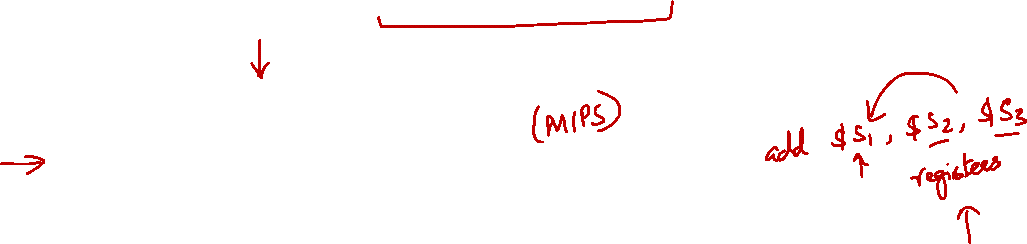 (MIPS)
add $s1, $s2, $s3
registers